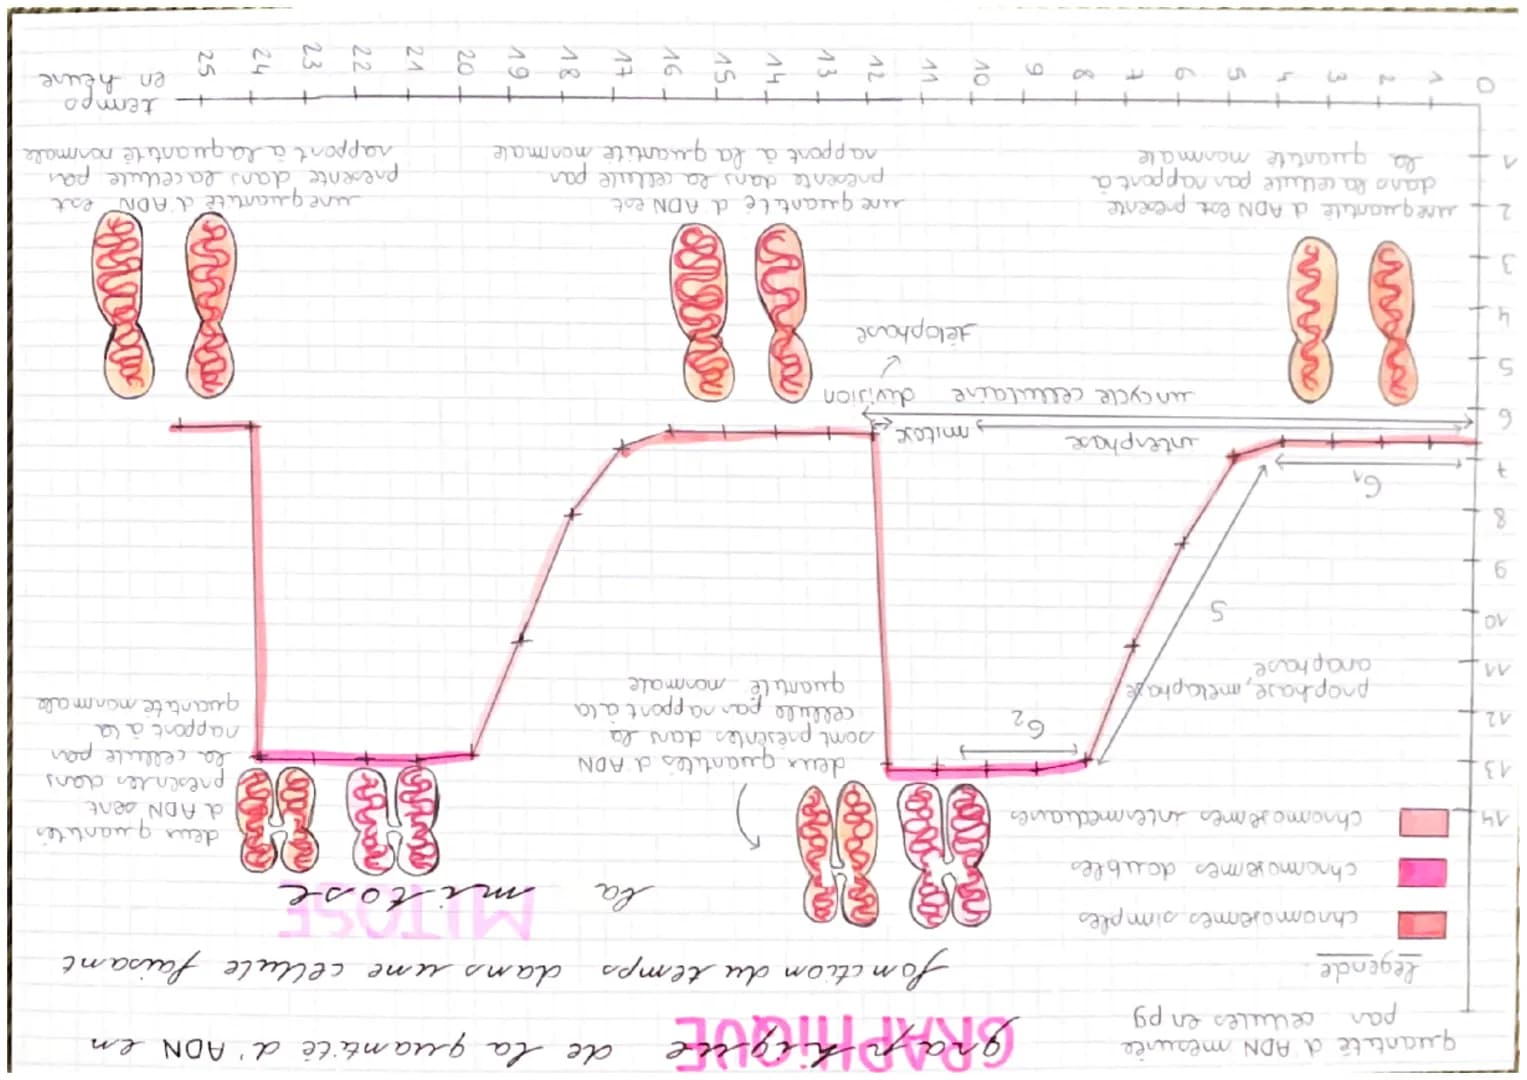 GRAPHIQUE
graphique de la quantité d'ADN en
fonction du temps dans une cellule faisant
MITOSE
la mitose
quantité d'ADN mesurée
par cellules en pg
légende
chromosomes simples
chromosomes doubles
chromosomes intermédiaires
14
13
12
11
10
9
8
7
6
5
4
3
2
1
0
1
2
3
4
5
6
7
8
9
10
11
12
13
14
15
16
17
18
19
20
21
22
23
24
25
temps
en heure
G2
prophase, métaphase,
anaphase
S
G1
interphase
mitose
un cycle cellulaire
division
télophase
deux quantités d'ADN
sont présentes dans la
cellule par rapport à la
quantité normale
deux quantités
d'ADN sont
présentes dans
la cellule par
rapport à la
quantité normale
une quantité d'ADN est présente
dans la cellule par rapport à
la quantité normale
une quantité d'ADN est
présente dans la cellule par
rapport à la quantité normale
une quantité d'ADN est
présente dans la cellule par
rapport à la quantité normale